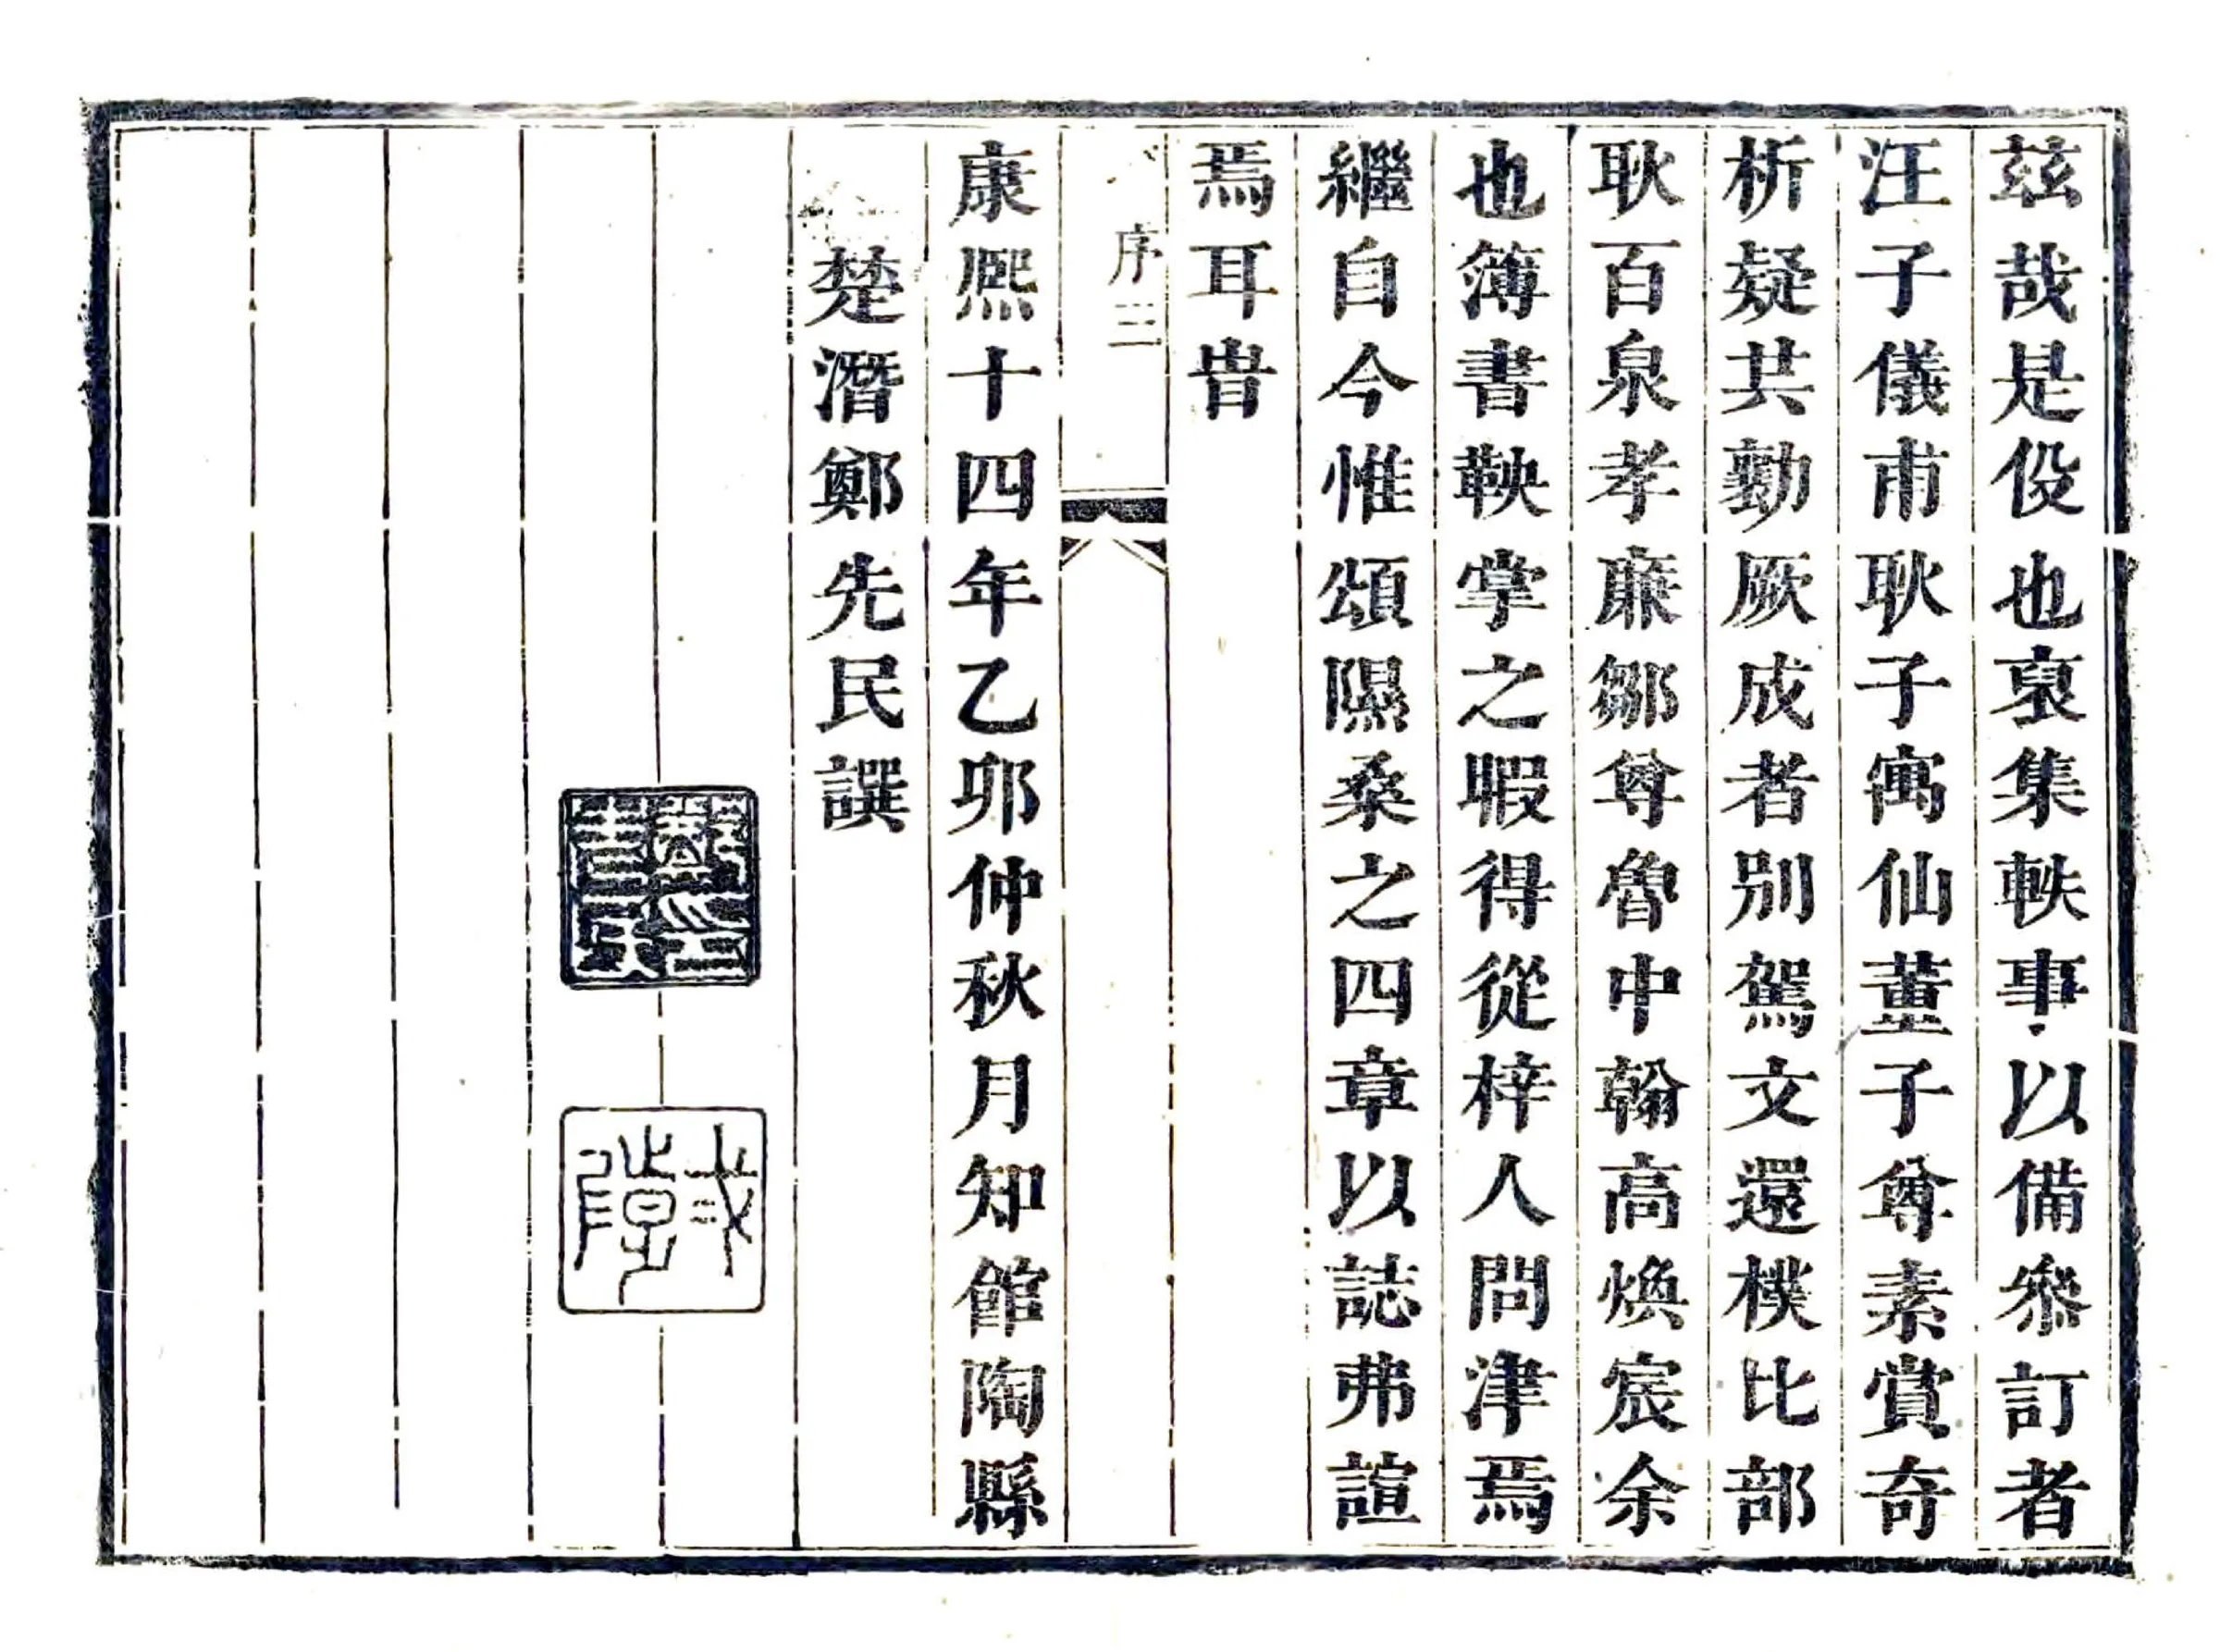 茲哉是役也裒集軼事以備叅訂者
汪子儀甫耿子寓仙董子尊素賞奇
析疑共勷厥成者別駕文還樸比部
耿百泉孝廉鄒尊魯中翰高煥宸余
也簿書鞅掌之暇得從梓人問津焉
繼自今惟頌隰桑之四章以誌弗諼
焉耳旹
序三
康熙十四年乙卯仲秋月知館陶縣
楚潛鄭先民譔